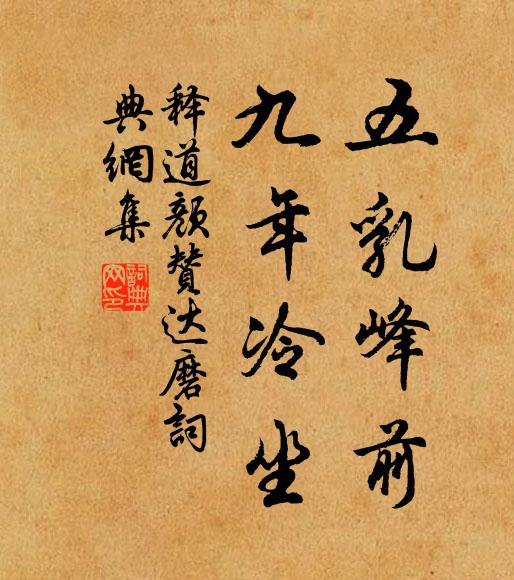 五乳峰前
九年冷坐
释道颜赞达磨詞
典網集
詞典网印